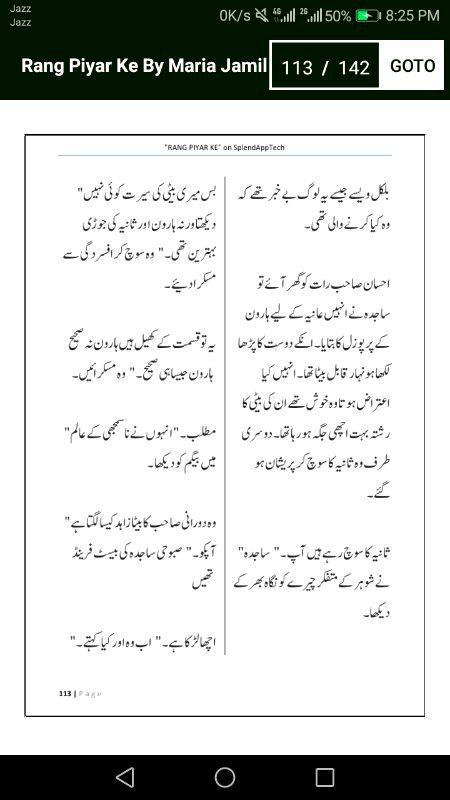 Jazz
Jazz
0K/s 4G 2G 50% 8:25 PM
Rang Piyar Ke By Maria Jamil
113 / 142
GOTO
"RANG PIYAR KE" on SplendAppTech
بلکل ویسے جیسے یہ لوگ بے خبر تھے کہ
وہ کیا کرنے والی تھی۔
احسان صاحب رات کو گھر آئے تو
ساجدہ نے انہیں عانیہ کے لیے ہارون
کے پرپوزل کا بتایا۔ انکے دوست کا پڑھا
لکھا ہونہار قابل بیٹا تھا۔ انہیں کیا
اعتراض ہوتا وہ خوش تھے ان کی بیٹی کا
رشتہ بہت اچھی جگہ ہو رہا تھا۔ دوسری
طرف وہ ثانیہ کا سوچ کر پریشان ہو
گئے۔
ثانیہ کا سوچ رہے ہیں آپ۔" ساجدہ"
نے شوہر کے متفکر چہرے کو نگاہ بھر کے
دیکھا۔
بس میری بیٹی کی سیرت کوئی نہیں"
دیکھتا ورنہ ہارون اور ثانیہ کی جوڑی
بہترین تھی۔" وہ سوچ کر افسردگی سے
مسکرا دیئے۔
یہ تو قسمت کے کھیل ہیں ہارون نہ صحیح
ہارون جیسا ہی صحیح۔" وہ مسکرائیں۔
مطلب۔" انہوں نے نا سمجھی کے عالم"
میں بیگم کو دیکھا۔
وہ درانی صاحب کا بیٹا زاہد کیسا لگتا ہے"
آپکو۔" صبوحی ساجدہ کی بیسٹ فرینڈ
تھیں
اچھا لڑکا ہے۔" اب وہ اور کیا کہتے۔"
113 | Page